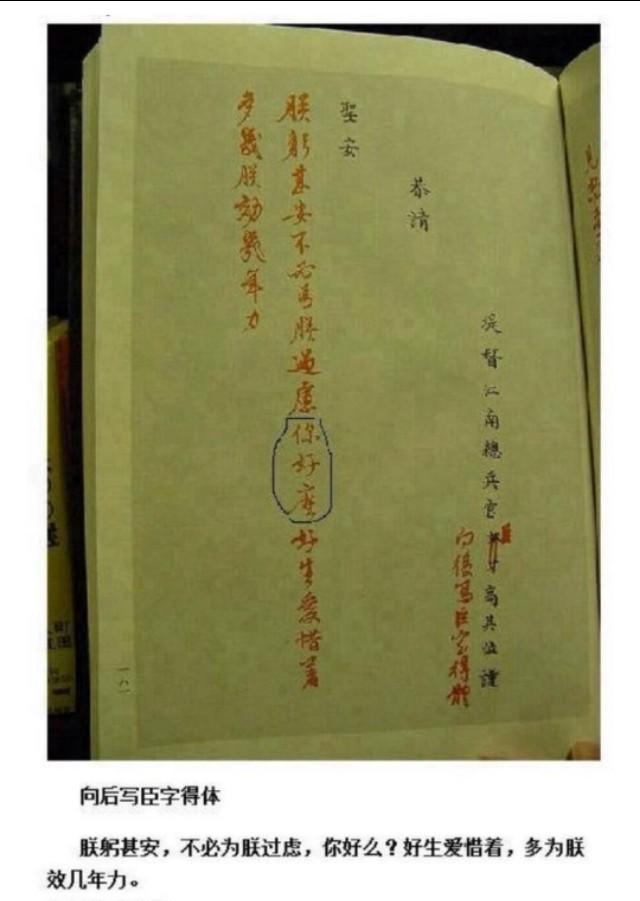 提督江南總兵官奴才高其位謹
臣
向後寫臣字得體
恭請
聖安
朕躬甚安不必為朕過慮你好麼好生愛惜著
多為朕効幾年力
向后写臣字得体
朕躬甚安，不必为朕过虑，你好么？好生爱惜着，多为朕
效几年力。